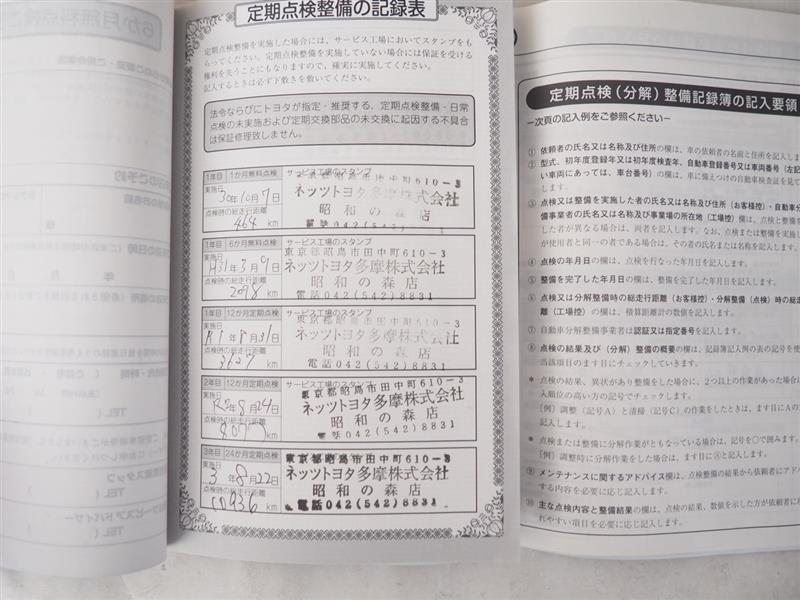 定期点検整備の記録表
定期点検整備を実施した場合には、サービス工場においてスタンプをも
らってください。定期点検整備を実施していない場合には保証を受ける
権利を失うことにもなりますので、確実に実施してください。
記入するときは必ず下敷きを敷いてください。
法令ならびにトヨタが指定・推奨する、定期点検整備・日常
点検の未実施および定期交換部品の未交換に起因する不具合
は保証修理致しません。
1年目 1か月無料点検 サービス工場のスタンプ
実施日 30年10月7日
点検時の総走行距離
464 km
東京都昭島市田中町610-3
ネッツトヨタ多摩株式会社
昭和の森店
電話042(542)
1年目 6か月無料点検 サービス工場のスタンプ
実施日 H31年3月9日
点検時の総走行距離
2098 km
東京都昭島市田中町610-3
ネッツトヨタ多摩株式会社
昭和の森店
電話042(542)8831
1年目 12か月定期点検 サービス工場のスタンプ
実施日 R1年8月31日
点検時の総走行距離
3627 km
東京都昭島市田中町610-3
ネッツトヨタ多摩株式会社
昭和の森店
電話042(542)8831
2年目 12か月定期点検 サービス工場のスタンプ
実施日 R2年8月24日
点検時の総走行距離
km
東京都昭島市田中町610-3
ネッツトヨタ多摩株式会社
昭和の森店
電話042(542)8831
3年目 24か月定期点検 サービス工場のスタンプ
実施日 3年8月22日
点検時の総走行距離
10936 km
東京都昭島市田中町610-3
ネッツトヨタ多摩株式会社
昭和の森店
電話042(542)8831
定期点検(分解)整備記録簿の記入要領
ー次頁の記入例をご参照くださいー
① 依頼者の氏名又は名称及び住所の欄は、車の依頼者の名前と住所を記入しま
② 型式、初年度登録年又は初年度検査年、自動車登録番号又は車両番号(左記
い車両にあっては、車台番号)の欄は、車に備えつけの自動車検査証を見て
します。
③ 点検又は整備を実施した者の氏名又は名称及び住所(お客様控)・自動車分
備事業者の氏名又は名称及び事業場の所在地(工場控)欄は、点検と整備を
した者が異なる場合は、両者を記入します。なお、点検または整備を実施し
が使用者と同一の者である場合は、その者の氏名または名称を記入します。
④ 点検の年月日の欄は、点検を行なった年月日を記入します。
⑤ 整備を完了した年月日の欄は、整備を完了した年月日を記入します。
⑥ 点検又は分解整備時の総走行距離(お客様控)・分解整備(点検)時の総走
離(工場控)の欄は、積算距離計の数値を記入します。
⑦ 自動車分解整備事業者は認証又は指定番号を記入します。
⑧ 点検の結果及び(分解)整備の概要の欄は、記録簿記入例の表の記号を使
当該項目のます目にチェックしていきます。
* 点検の結果、異状があり整備をした場合に、2つ以上の作業があった場合
入順位の高い方の記号でチェックします。
〔例〕調整(記号A)と清掃(記号C)の作業をしたときは、ます目にAの
記入します。
* 点検または整備に分解作業がともなっている場合は、記号を○で囲みます。
〔例〕調整時に分解作業をした場合は、ます目にⒶと記入します。
⑨ メンテナンスに関するアドバイス欄は、点検整備の結果から依頼者にアド
する内容を必要に応じ記入します。
⑩ 主な点検内容と整備結果の欄は、点検の結果、数値を示した方が依頼者に
れやすい項目を必要に応じ記入します。